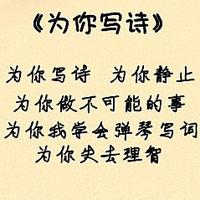 《为你写诗》
为你写诗 为你静止
为你做不可能的事
为你我学会弹琴写词
为你失去理智